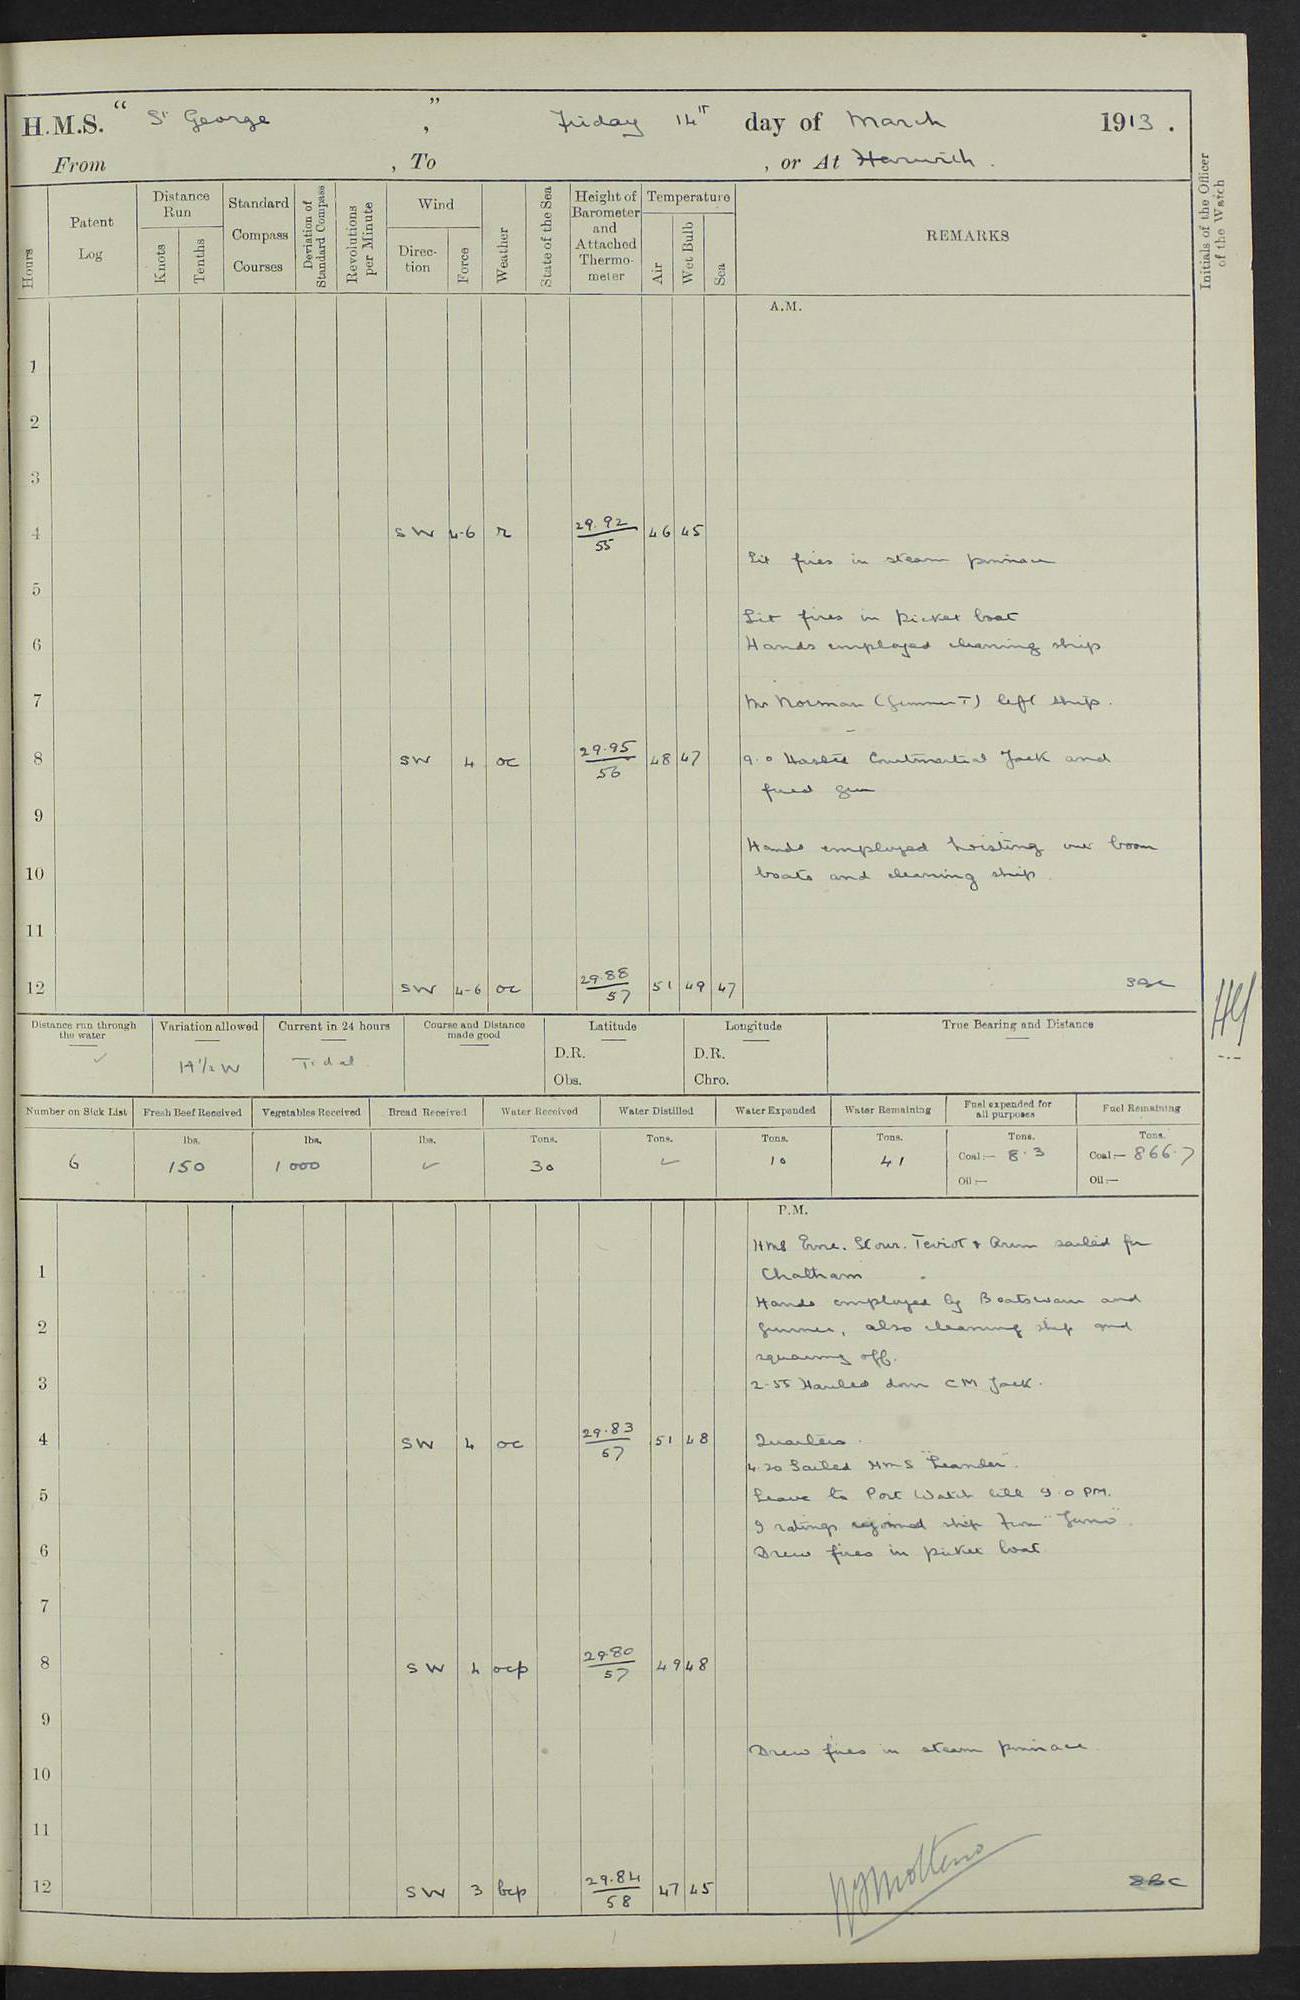 H.M.S. "St George", Friday 14th day of March 1913.
From , To , or At Harwich.
Hours
Patent Log
Distance Run
Knots
Tenths
Standard Compass Courses
Deviation of Standard Compass
Revolutions per Minute
Wind
Direction
Force
Weather
State of the Sea
Height of Barometer and Attached Thermometer
Temperature
Air
Wet Bulb
Sea
REMARKS
Initials of the Officer of the Watch
A.M.
1
2
3
4 SW 4-6 r 29.92 55 46 45
Lit fires in steam pinnace
5
Lit fires in picket boat
6 Hands employed cleaning ship
7 Mr Norman (Gunner T) left ship.
8 SW 4 oc 29.95 56 48 47 9.0 Hoisted Courtmartial Jack and
fired gun
9
Hands employed hoisting out boom
10 boats and cleaning ship.
11
12 SW 4-6 oc 29.88 57 51 49 47 SBC
Distance run through the water ✓
Variation allowed 14½ W
Current in 24 hours Tidal
Course and Distance made good
Latitude
D.R.
Obs.
Longitude
D.R.
Chro.
True Bearing and Distance
Number on Sick List 6
Fresh Beef Received lbs. 150
Vegetables Received lbs. 1000
Bread Received lbs. ✓
Water Received Tons. 30
Water Distilled Tons. ✓
Water Expended Tons. 10
Water Remaining Tons. 41
Fuel expended for all purposes Tons. Coal:— 8.3 Oil:—
Fuel Remaining Tons. Coal:— 866.7 Oil:—
P.M.
HMS Erne. Stour. Teviot & Arun sailed for
1 Chatham
Hands employed by Boatswain and
2 Gunner, also cleaning ship and
squaring off.
3 2-55 Hauled down CM Jack.
4 SW 4 oc 29.83 57 51 48 Quarters.
4.20 Sailed HMS "Leander".
5 Leave to Port Watch till 9.0 PM.
9 ratings rejoined ship from "Juno".
6 Drew fires in picket boat
7
8 SW 4 ocp 29.80 57 49 48
9
Drew fires in steam pinnace
10
11
12 SW 3 bcp 29.84 58 47 45 SBC
Molteno